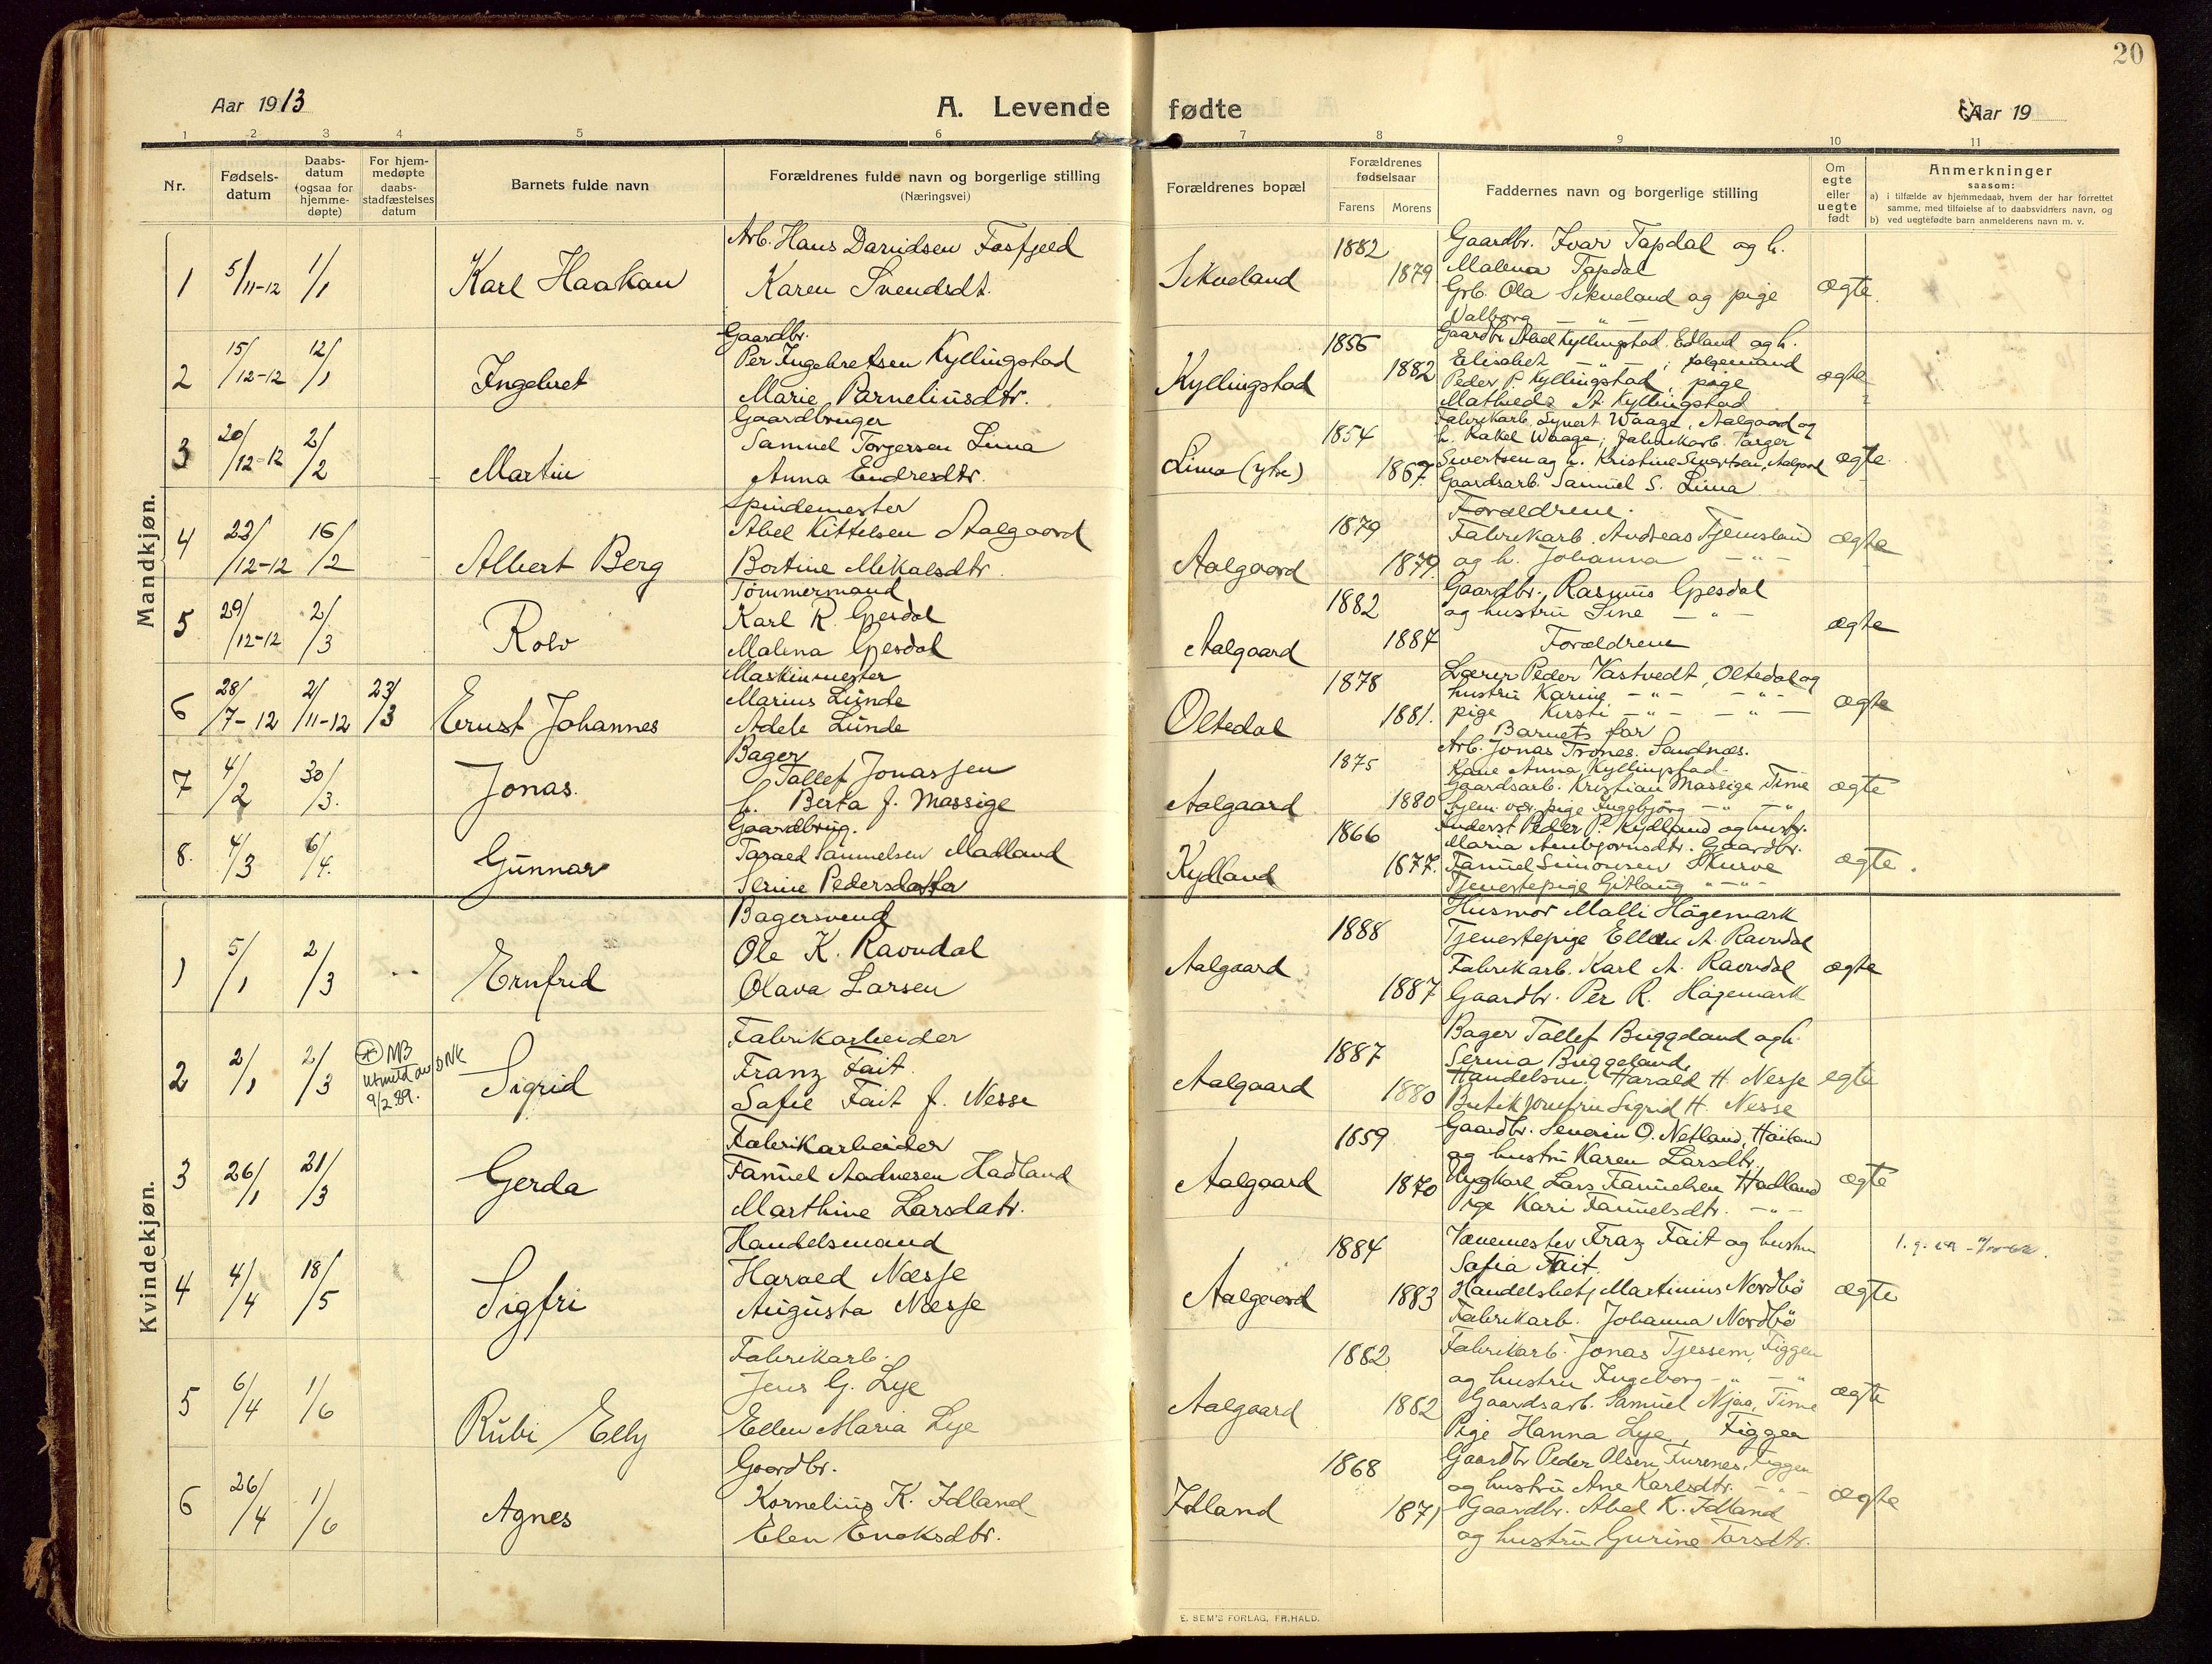 20
Aar 1913
A. Levende fødte
Aar 19
1 2 3 4 5 6 7 8 9 10 11
Nr.
Fødsels-
datum
Daabs-
datum
(ogsaa for
hjemme-
døpte)
For hjem-
medøpte
daabs-
stadfæstelses
datum
Barnets fulde navn
Forældrenes fulde navn og borgerlige stilling
(Næringsvei)
Forældrenes bopæl
Forældrenes
fødselsaar
Farens Morens
Faddernes navn og borgerlige stilling
Om
egte
eller
uegte
født
Anmerkninger
saasom:
a) i tilfælde av hjemmedaab, hvem der har forrettet
samme, med tilføielse af to daabsvidners navn, og
b) ved uegtefødte barn anmelderens navn m. v.
Mandkjøn.
1 5/11-12 1/1 Karl Haakon
Arb. Hans Davidsen Fosfjeld
Karen Svendsdt.
Sikveland 1882 1879
Gaardbr. Ivar Tapdal og h.
Malena Tapdal
Grb. Ola Sikveland og pige
Valborg — " —
ægte.
2 15/12-12 12/1 Ingebret
Gaardbr.
Per Ingebretsen Kyllingstad
Marie Parneliusdtr.
Kyllingstad 1856 1882
Gaardbr. Abel Kyllingstad, Edland og h.
Elisabet — " — ; følgemand
Peder P. Kyllingstad, pige
A. Kyllingstad
ægte
3 20/12-12 2/2 Martin
Gaardbruger
Samuel Torgersen Lima
Anna Endresdtr.
Lima (ytre) 1854 1867.
Fabrikarb. Syvert Waage, Aalgaard og
h. Rakel Waage; Fabrikarb. Torger
Sivertsen og h. Kristine Sivertsen, Aalgaard
Gaardsarb. Samuel S. Lima
ægte.
4 23/12-12 16/2 Albert Berg
Spindemester
Abel Kittelsen Aalgaard
Bortine Mikalsdtr.
Aalgaard 1879 1879.
Forældrene.
Fabrikarb. Andreas Tjemsland
og h. Johanna — " —
ægte
5 29/12-12 2/3 Rolv
Tømmermand
Karl R. Gjesdal
Malena Gjesdal
Aalgaard 1882 1887
Gaardbr. Rasmus Gjesdal
og hustru Sine — " —
Forældrene
ægte
6 28/7-12 2/11-12 23/3 Ernst Johannes
Maskinmester
Marius Lunde
Adele Lunde
Oltedal 1878 1881.
Lærer Peder Vastvedt, Oltedal og
hustru Karine — " — — " —
pige Kirsti — " — — " —
Barnets far
ægte
7 4/2 30/3. Jonas.
Bager
Tollef Jonassen
h. Berta f. Massige
Aalgaard 1875 1880
Arb. Jonas Trones. Sandnæs.
Kone Anna Kyllingstad
Gaardsarb. Kristian Massige Time
hjem. vær. pige Ingebjørg — " — — " —
ægte
8. 4/3 6/4. Gunnar
Gaardbrug.
Toraed Samuelsen Madland
Serine Pedersdatter
Kydland 1866 1877.
Peder P. Kydland og hustr.
Maria Arnbjørnsdtr. Gaardbr.
Samuel Simonsen Skurve
Tjenestepige Gitlaug — " —
ægte.
Kvindekjøn.
1 5/1 2/3 Ernfrid
Bagersvend
Ole K. Ravndal
Olava Larsen
Aalgaard 1888 1887
Husmor Malli Hågemark
Tjenestepige Ellen A. Ravndal
Fabrikarb. Karl A. Ravndal
Gaardbr. Per R. Hågemark
ægte
2 2/1 2/3 Sigrid
MB
Utmeld av DNK
9/2 89.
Fabrikarbeider
Franz Fait.
Safie Fait f. Nesse
Aalgaard 1887 1880
Bager Tollef Buggeland og h.
Serina Buggeland.
Handelsm. Harald H. Nesse
Butikjomfru Sigrid H. Nesse
egte
3 26/1 21/3 Gerda
Fabrikarbeider
Samuel Aadnesen Hadland
Marthine Larsdatr.
Aalgaard 1859 1870
Gaardbr. Severin O. Netland, Høiland
og hustru Karen Larsdtr.
Ungkarl Lars Samuelsen Hadland
Pige Kari Samuelsdtr. — " —
ægte
4 4/4 18/5 Sigfri
Handelsmand
Harald Næsse
Augusta Næsse
Aalgaard 1884 1883
Vævemester Fraz Fait og hustru
Safia Fait.
Handelsbetj Martinius Nordbö
Fabrikarb. Johanna Nordbö
ægte
5 6/4 1/6 Rubi Elly
Fabrikarb.
Jens G. Lye
Ellen Maria Lye
Aalgaard 1882 1882
Fabrikarb. Jonas Tjessem, Figgen
og hustru Ingeborg — " — — " —
Gaardsarb. Samuel Njaa, Time
Pige Hanna Lye, Figgen
ægte
6 26/4 1/6 Agnes
Gaardbr.
Kornelius K. Idland
Elen Eneksdtr.
Idland 1868 1871
Gaardbr Peder Olsen Furenes, Figgen
og hustru Ane Karlsdtr. — " —
Gaardbr. Abel K. Idland
og hustru Gurine Tarsdtr.
ægte
E. SEM'S FORLAG, FR.HALD.